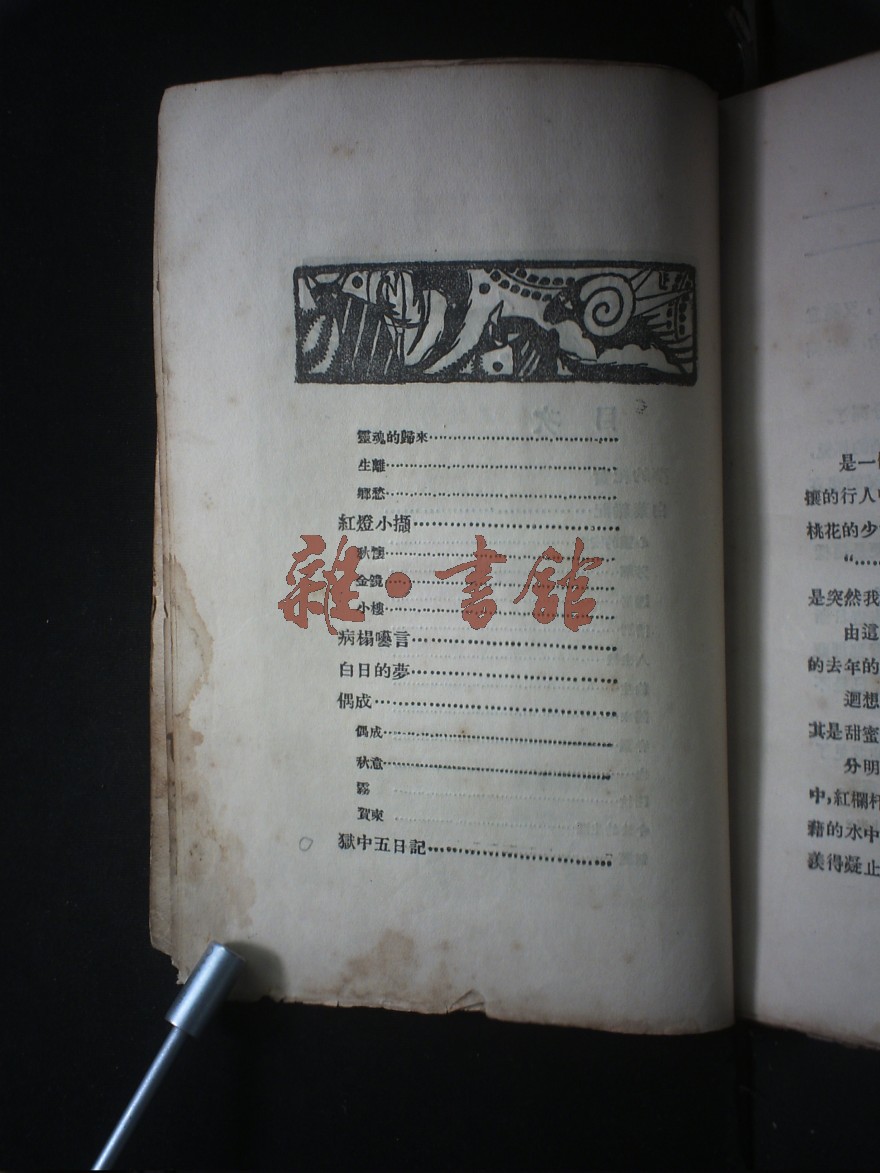 靈魂的歸來
生離
鄉愁
紅燈小擷
秋懷
金鏡
小樓
病榻囈言
白日的夢
偶成
偶成
秋意
霧
賀柬
獄中五日記
雜·書館
是一
攘的行人
桃花的少
“……
是突然我
由這
的去年的
迴想
其是甜蜜
分明
中，紅欄杆
藉的水中
渼得凝止